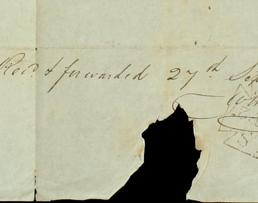 Rec'd & forwarded 27th Sep